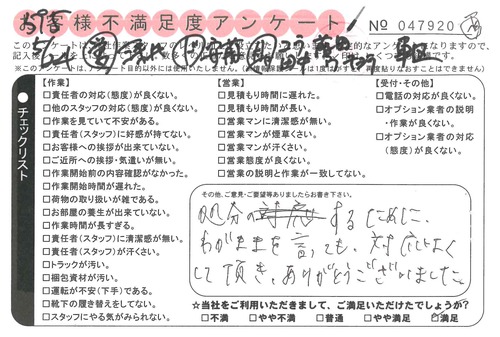 お客様不満足度アンケート
No 047920
このアンケートは
チェックリスト
【作業】
□責任者の対応(態度)が良くない。
□他のスタッフの対応(態度)が良くない。
□作業を見ていて不安がある。
□責任者(スタッフ)に好感が持てない。
□お客様への挨拶が出来ていない。
□ご近所への挨拶・気遣いが無い。
□作業開始前の内容確認がなかった。
□作業開始時間が遅れた。
□荷物の取り扱いが雑である。
□お部屋の養生が出来ていない。
□作業時間が長すぎる。
□責任者(スタッフ)に清潔感が無い。
□責任者(スタッフ)が汗くさい。
□トラックが汚い。
□梱包資材が汚い。
□運転が不安(下手)である。
□靴下の履き替えをしてない。
□スタッフにやる気がみられない。
【営業】
□見積もり時間に遅れた。
□見積もり時間が長い。
□営業マンに清潔感が無い。
□営業マンが煙草くさい。
□営業マンが汗くさい。
□営業態度が良くない。
□営業の説明と作業が一致してない。
【受付・その他】
□電話の対応が良くない。
□オプション業者の説明
・作業が良くない。
□オプション業者の対応
(態度)が良くない。
その他、ご意見・ご要望等ありましたらお書き下さい。
処分の するために、
わがままを言っても、対応よく
して頂き、ありがとうございました。
☆当社をご利用いただきまして、ご満足いただけたでしょうか?
□不満 □やや不満 □普通 □やや満足 ☑満足